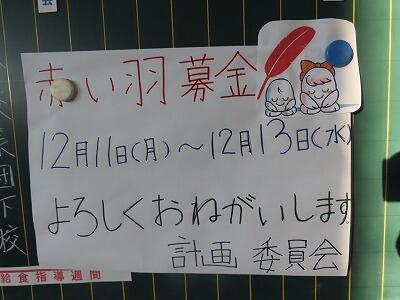 会
赤い羽募金
12月11日(月)〜12月13日(水)
よろしくおねがいします
計画委員会
集団下校
給食指導週間